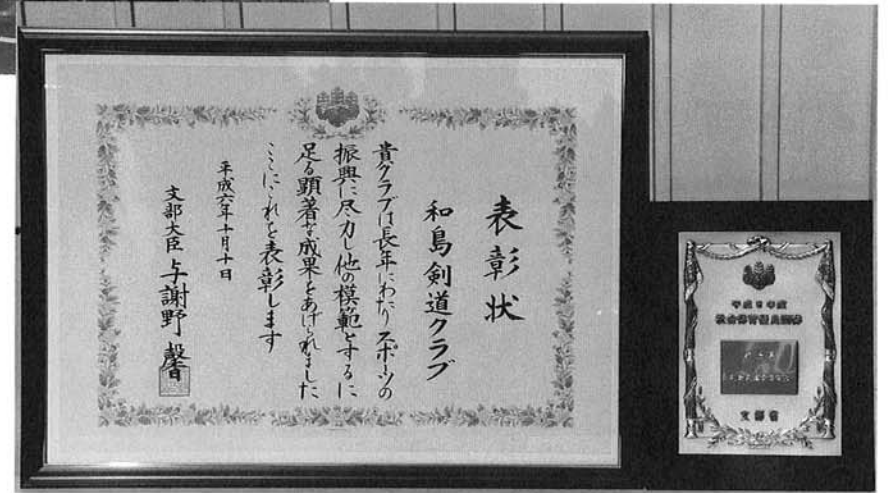 表彰状
和島剣道クラブ
貴クラブは長年にわたりスポーツの
振興に尽力し他の模範とするに
足る顕著な成果をあげられました
ここにこれを表彰します
平成六年十月十日
文部大臣 与謝野 馨
平成6年度
社会体育優良団体
文部省